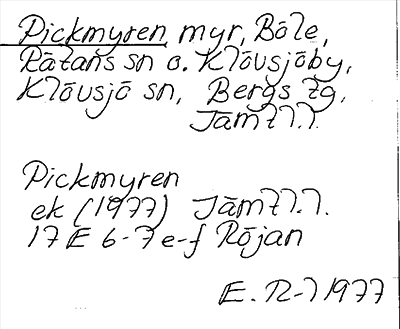 Pickmyren myr, Böle,
Rätans sn o. Klövsjöby,
Klövsjö sn, Bergs tg,
Jämtl.
Pickmyren
ek (1977) Jämtl.
17 E 6-7 e-f Röjan
E. R-l 1977